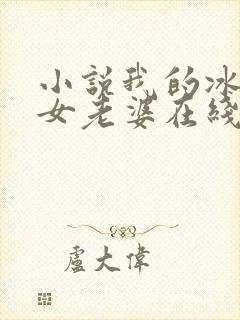 小説我的冰
女老婆在綫
盧大偉